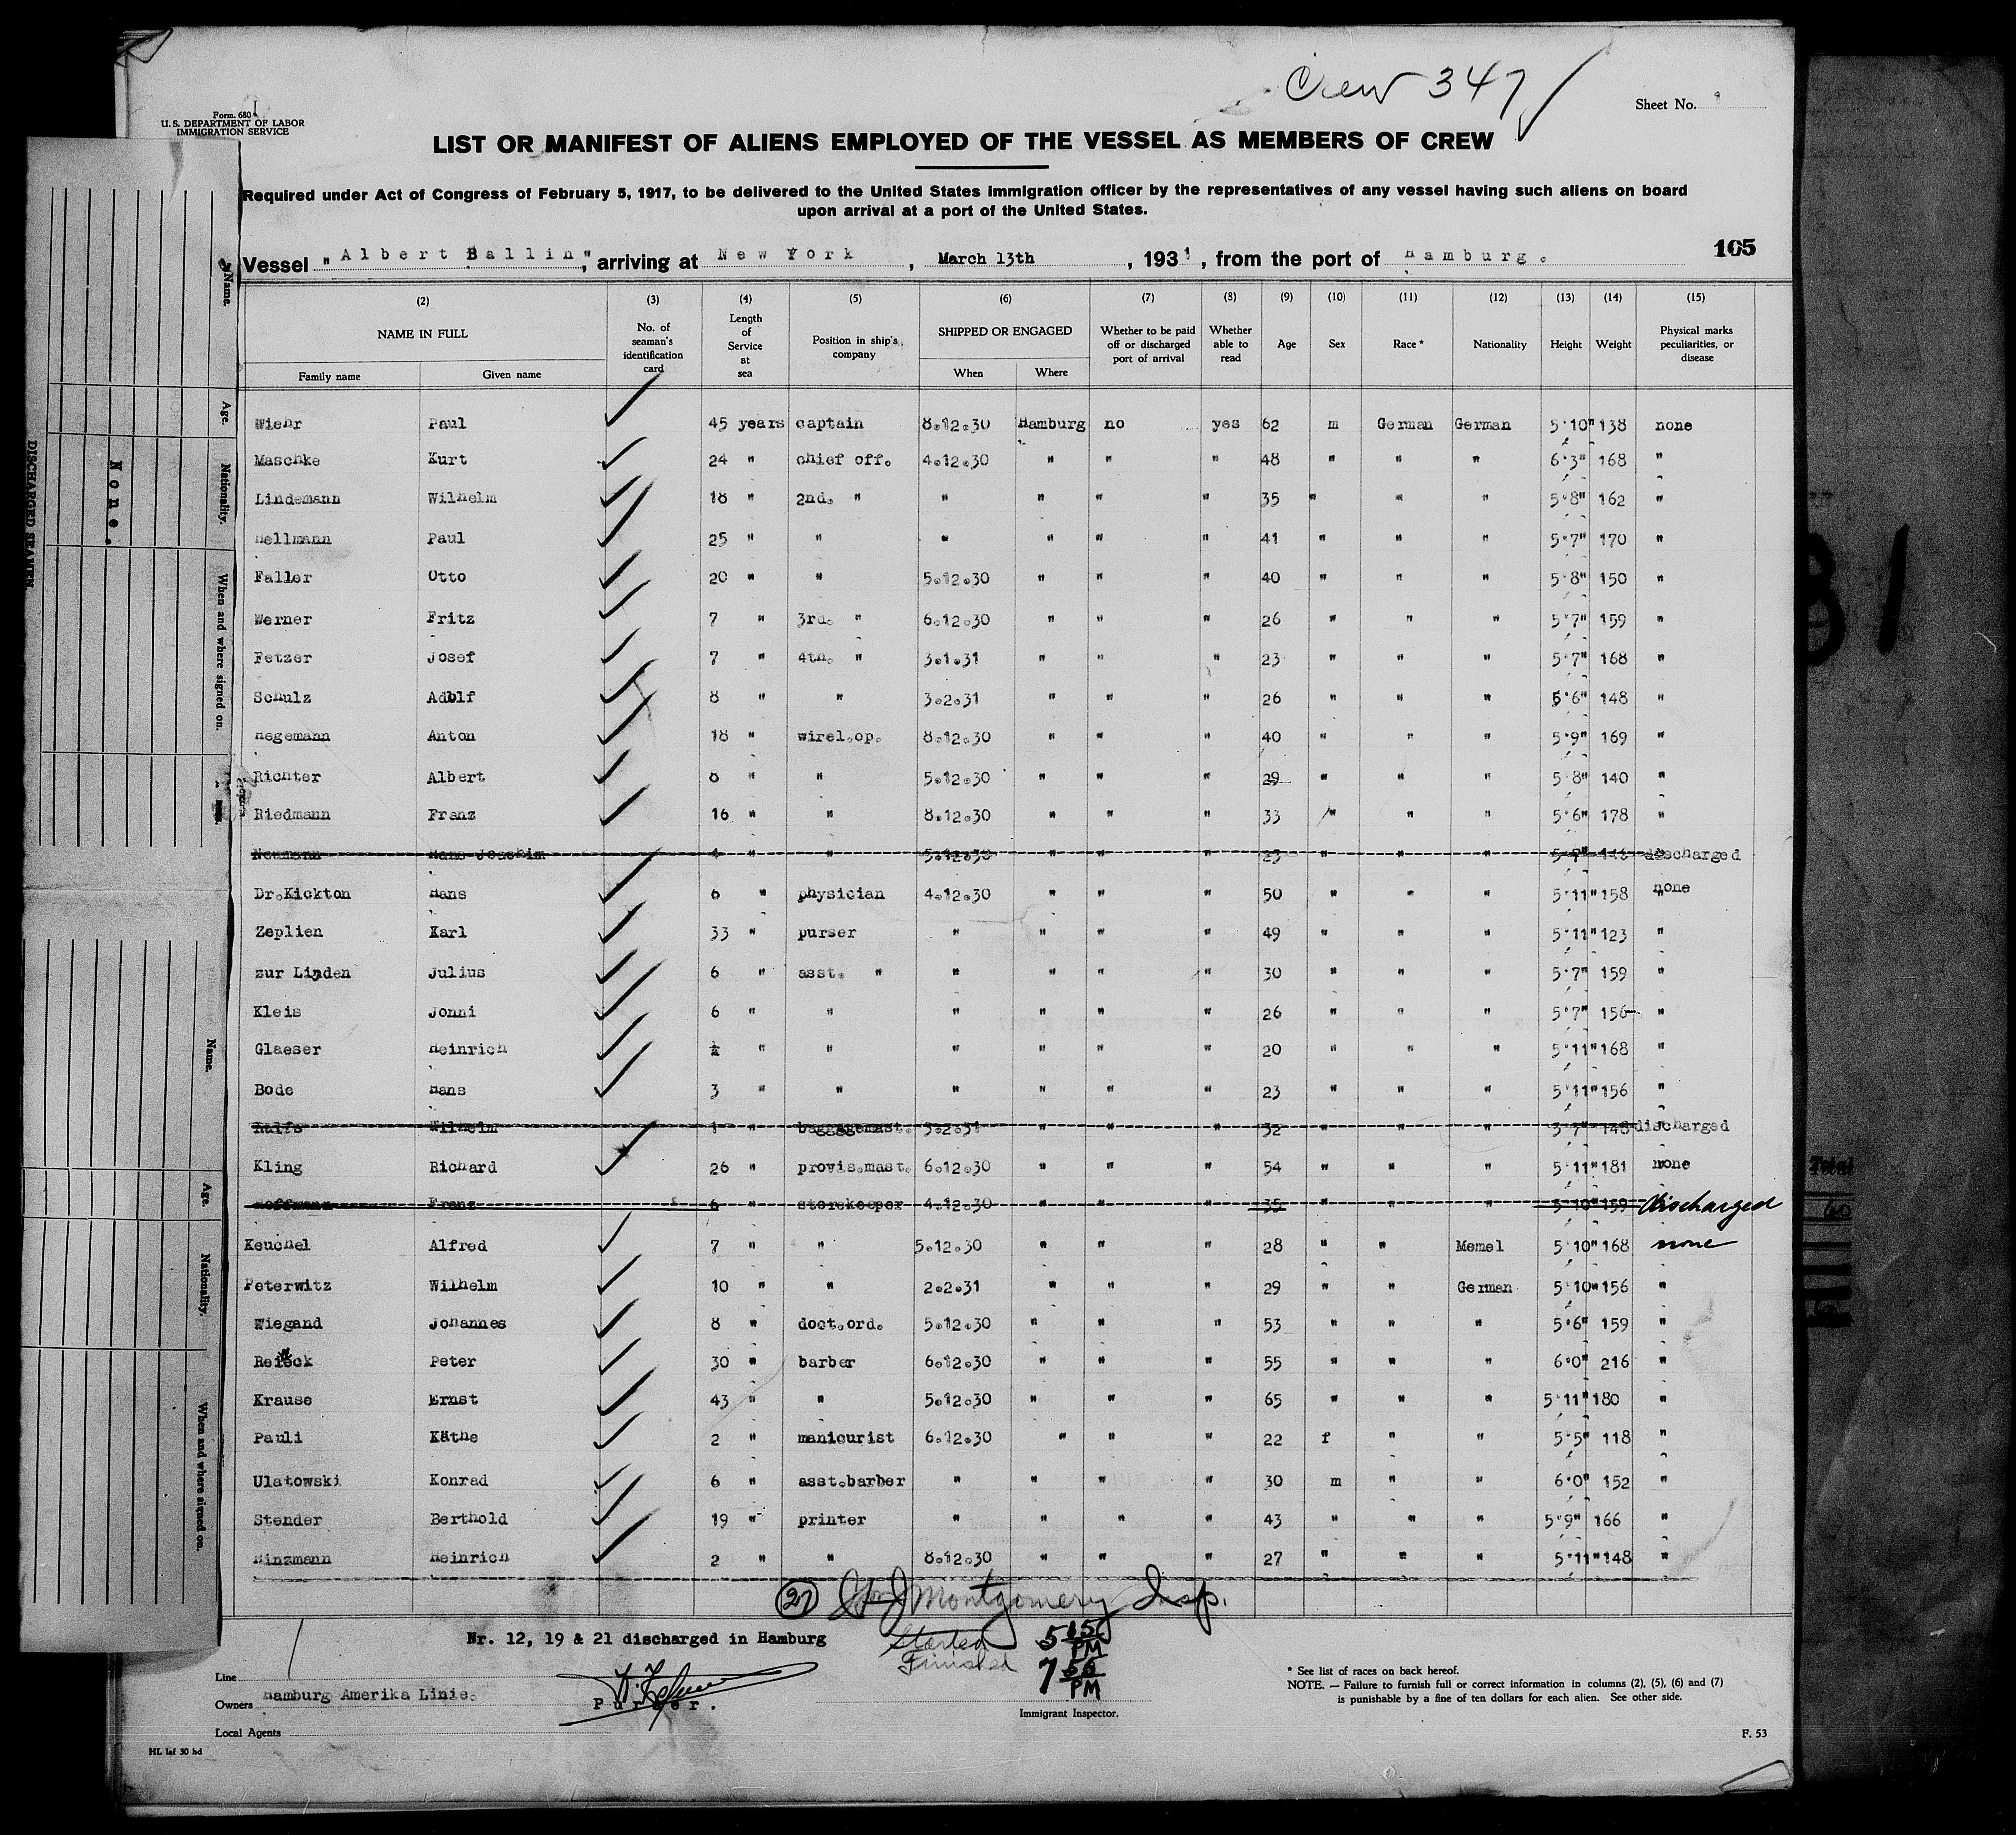 Crew 347
Form. 680
U. S. DEPARTMENT OF LABOR
IMMIGRATION SERVICE
Sheet No.
LIST OR MANIFEST OF ALIENS EMPLOYED OF THE VESSEL AS MEMBERS OF CREW
Required under Act of Congress of February 5, 1917, to be delivered to the United States immigration officer by the representatives of any vessel having such aliens on board
upon arrival at a port of the United States.
Vessel "Albert Ballin", arriving at New York, March 13th, 1931, from the port of Hamburg. 165
(2) (3) (4) (5) (6) (7) (8) (9) (10) (11) (12) (13) (14) (15)
NAME IN FULL No. of seaman's identification card Length of Service at sea Position in ship's company SHIPPED OR ENGAGED Whether to be paid off or discharged port of arrival Whether able to read Age Sex Race * Nationality Height Weight Physical marks peculiarities, or disease
Family name Given name When Where
Wiehr Paul 45 years captain 8.12.30 Hamburg no yes 62 m German German 5'10" 138 none
Maschke Kurt 24 " chief off. 4.12.30 " " " 48 " " " 6'3" 168 "
Lindemann Wilhelm 18 " 2nd. " " " " " 35 " " " 5'8" 162 "
Hellmann Paul 25 " " " " " " 41 " " " 5'7" 170 "
Faller Otto 20 " " 5.12.30 " " " 40 " " " 5'8" 150 "
Werner Fritz 7 " 3rd. " 6.12.30 " " " 26 " " " 5'7" 159 "
Fetzer Josef 7 " 4th. " 3.1.31 " " " 23 " " " 5'7" 168 "
Schulz Adolf 8 " " 3.2.31 " " " 26 " " " 5'6" 148 "
Hegemann Anton 18 " wirel.op. 8.12.30 " " " 40 " " " 5'9" 169 "
Richter Albert 8 " " 5.12.30 " " " 29 " " " 5'8" 140 "
Riedmann Franz 16 " " 8.12.30 " " " 33 " " " 5'6" 178 "
Neumann Hans Joachim " " 5.12.30 " " " 23 " " " 5'7" discharged
Dr.Kickton Hans 6 " physician 4.12.30 " " " 50 " " " 5'11" 158 none
Zeplien Karl 33 " purser " " " " 49 " " " 5'11" 123 "
zur Linden Julius 6 " asst. " " " " " 30 " " " 5'7" 159 "
Kleis Jonni 6 " " " " " " 26 " " " 5'7" 156 "
Glaeser Heinrich " " " " " " 20 " " " 5'11" 168 "
Bode Hans 3 " " " " " " 23 " " " 5'11" 156 "
Wilhelm 1 " baggagemast. 3.2.31 " " " 32 " " " 5'7" 148 discharged
Kling Richard 26 " provis.mast. 6.12.30 " " " 54 " " " 5'11" 181 none
Hoffmann Franz 6 " storekeeper 4.12.30 " " " 35 " " " 5'10" 159 discharged
Keuchel Alfred 7 " " 5.12.30 " " " 28 " " Memel 5'10" 168 none
Peterwitz Wilhelm 10 " " 2.2.31 " " " 29 " " German 5'10" 156 "
Wiegand Johannes 8 " doct.ord. 5.12.30 " " " 53 " " " 5'6" 159 "
Peter 30 " barber 6.12.30 " " " 55 " " " 6'0" 216 "
Krause Ernst 43 " " 5.12.30 " " " 65 " " " 5'11" 180 "
Pauli Käthe 2 " manicurist 6.12.30 " " " 22 f " " 5'5" 118 "
Ulatowski Konrad 6 " asst.barber " " " " 30 m " " 6'0" 152 "
Stender Berthold 19 " printer " " " " 43 " " " 5'9" 166 "
Hinzmann Heinrich 2 " " 8.12.30 " " " 27 " " " 5'11" 148 "
27 Montgomery Insp.
Nr. 12, 19 & 21 discharged in Hamburg
Started 5 15 PM
Finished 7 56 PM
Line
Owners Hamburg Amerika Linie.
Purser.
Immigrant Inspector.
Local Agents
* See list of races on back hereof.
NOTE. — Failure to furnish full or correct information in columns (2), (5), (6) and (7)
is punishable by a fine of ten dollars for each alien. See other side.
HL laf 30 hd
F. 53
DISCHARGED SEAMEN
None.
Name.
Age.
Nationality.
When and where signed on.
Name.
Age.
Nationality.
When and where signed on.
81
Total
60